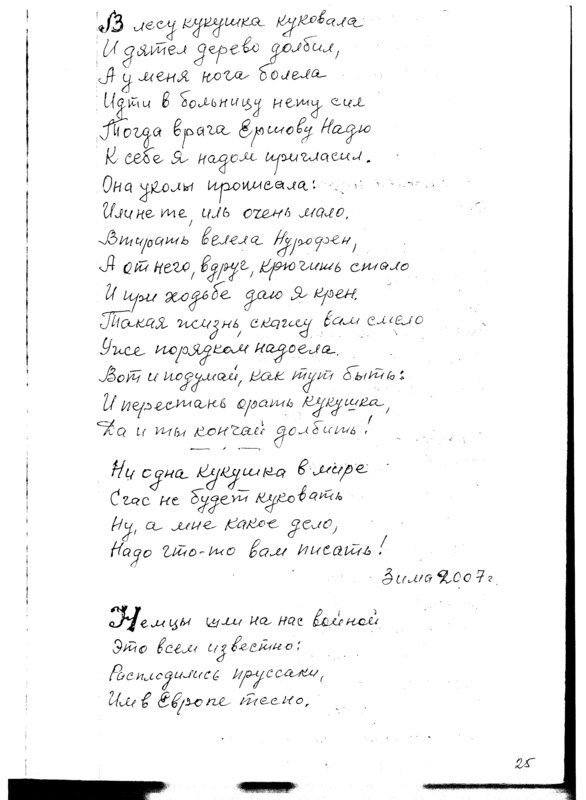 В лесу кукушка куковала
И дятел дерево долбил,
А у меня нога болела
Идти в больницу нету сил
Тогда врага Ершову Надю
К себе я надом пригласил.
Она уколы прописала:
Или не те, иль очень мало.
Втирать велела Нурофен,
А от него, вдруг, крючить стало
И при ходьбе даю я крен.
Такая жизнь, скажу вам смело
Уже порядком надоела.
Вот и подумай, как тут быть:
И перестань орать кукушка,
Да и ты кончай долбить!
Ни одна кукушка в мире
Счас не будет куковать
Ну, а мне какое дело,
Надо что-то вам писать!
Зима 2007г.
Немцы шли на нас войной
Это всем известно:
Расплодились пруссаки,
Им в Европе тесно.
25